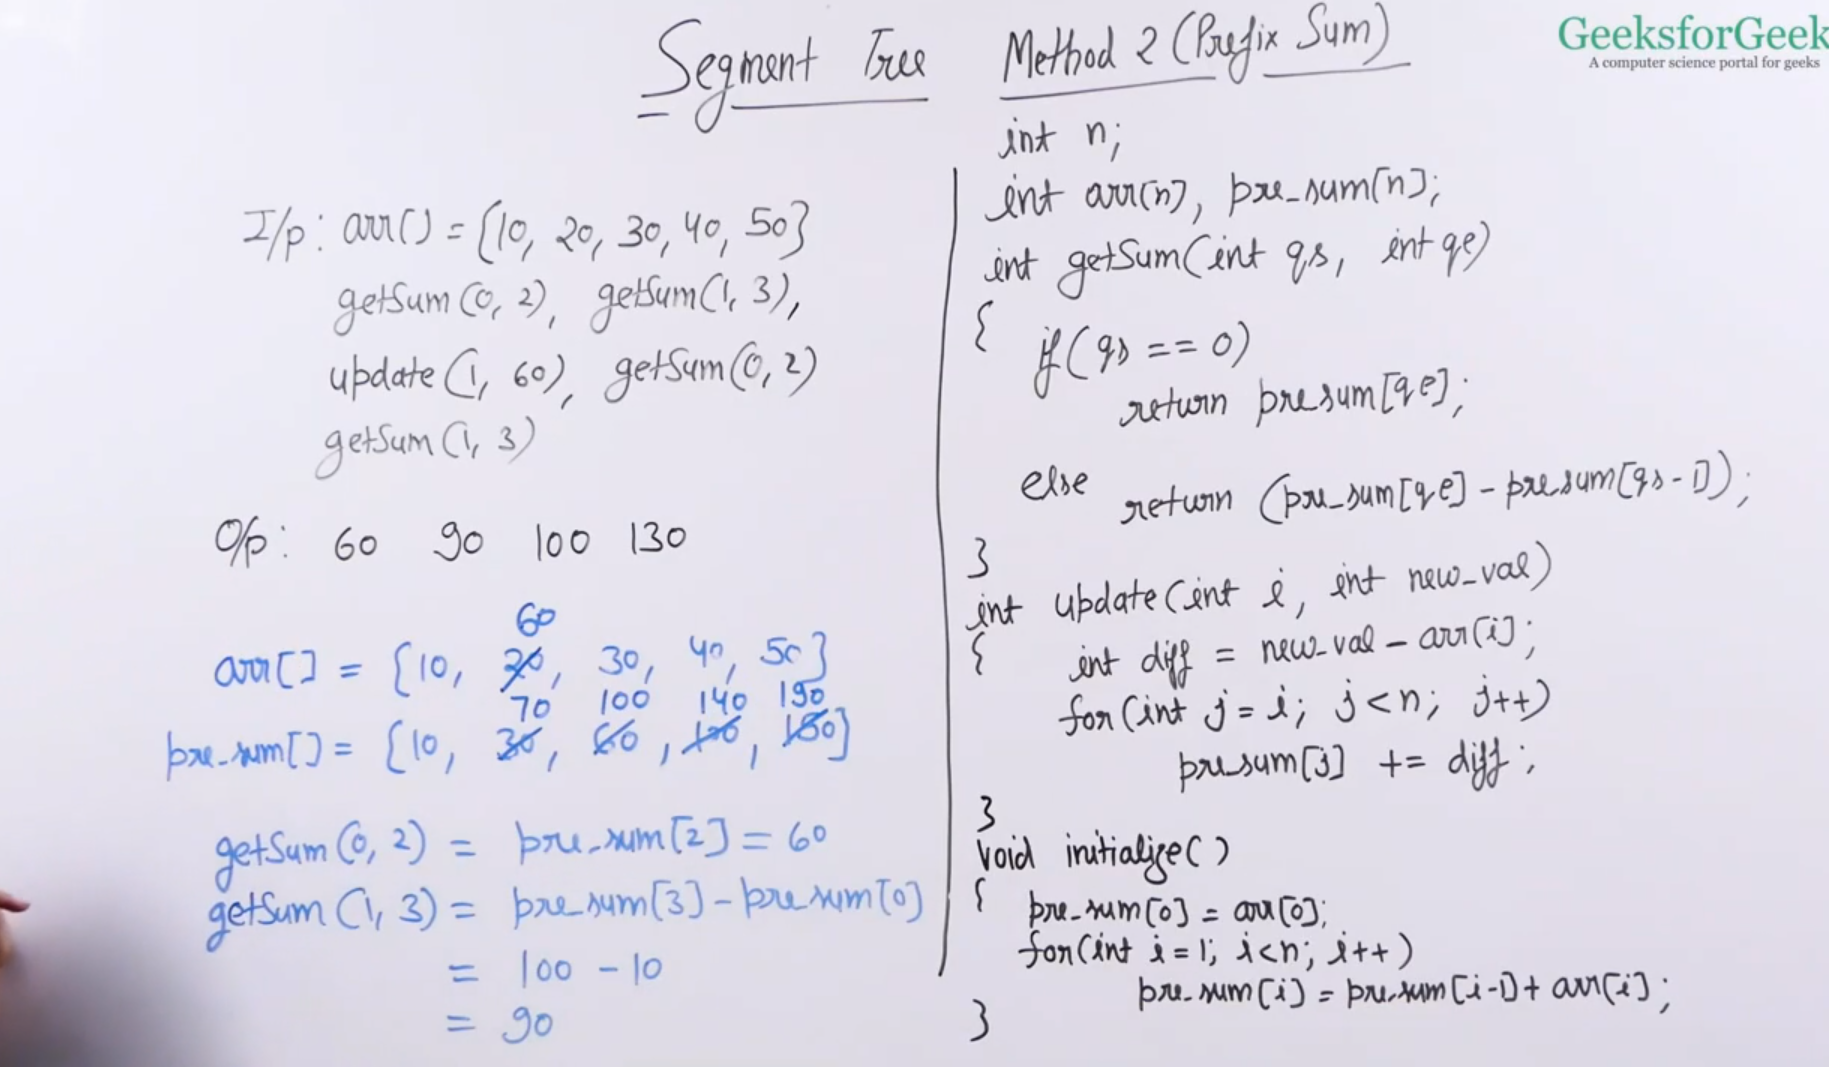 Segment Tree Method 2 (Prefix Sum)
GeeksforGeek
A computer science portal for geeks
I/p: arr[] = {10, 20, 30, 40, 50}
getSum(0, 2), getSum(1, 3),
update(1, 60), getSum(0, 2)
getSum(1, 3)
O/p: 60 90 100 130
60
arr[] = {10, 20, 30, 40, 50}
70 100 140 190
pre_sum[] = {10, 30, 60, 100, 150}
getSum(0, 2) = pre_sum[2] = 60
getSum(1, 3) = pre_sum[3] - pre_sum[0]
= 100 - 10
= 90
int n;
int arr[n], pre_sum[n];
int getSum(int qs, int qe)
{
if(qs == 0)
return presum[qe];
else
return (pre_sum[qe] - presum[qs-1]);
}
int update(int i, int new_val)
{ int diff = new_val - arr[i];
for(int j = i; j < n; j++)
pre_sum[j] += diff;
}
void initialize()
{ pre_sum[0] = arr[0];
for(int i = 1; i < n; i++)
pre_sum[i] = pre_sum[i-1] + arr[i];
}